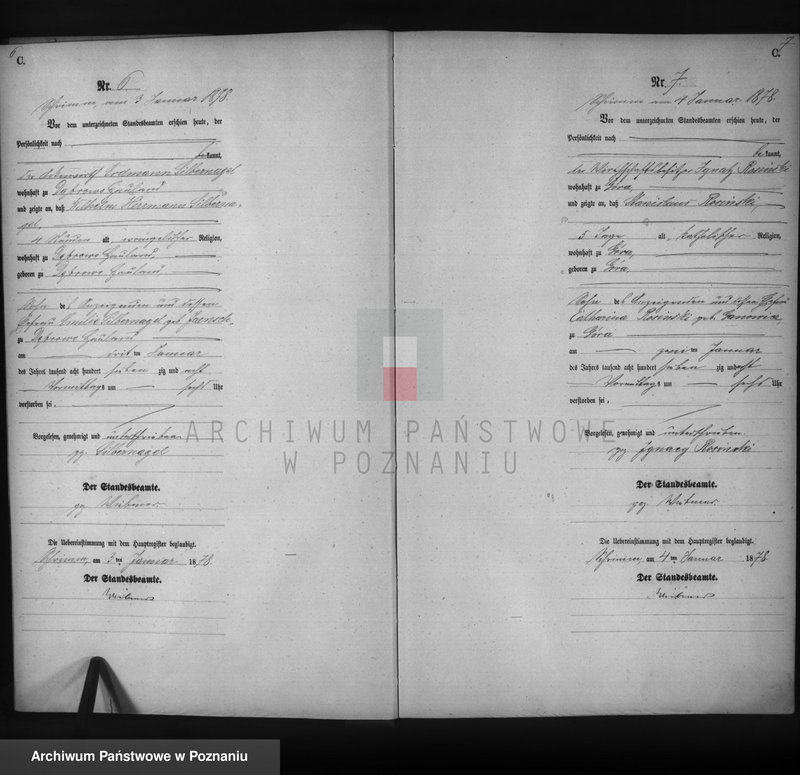 6
C.
Nr. 6.
Schrimm am 3 Januar 1878.
Vor dem unterzeichneten Standesbeamten erschien heute, der
Persönlichkeit nach
bekannt,
der Erdmann Silbernagel
wohnhaft zu Dąbrowo Hauland
und zeigte an, daß Wilhelm Herrmann Silberna-
gel,
4 Stunden alt, evangelischer Religion,
wohnhaft zu Dąbrowo Hauland
geboren zu Dąbrowo Hauland
Sohn des Anzeigenden und dessen
Ehefrau Emilie Silbernagel geb.
zu Dąbrowo Hauland
am Januar
des Jahres tausend acht hundert sieben zig und acht
Vormittags um sechs Uhr
verstorben sei.
Vorgelesen, genehmigt und unterschrieben
gez. Silbernagel
Der Standesbeamte.
gez.
Die Uebereinstimmung mit dem Hauptregister beglaubigt.
Schrimm, am 3ten Januar 1878.
Der Standesbeamte.
7
C.
Nr. 7.
Schrimm am 4 Januar 1878.
Vor dem unterzeichneten Standesbeamten erschien heute, der
Persönlichkeit nach
bekannt,
der Wirthschaftsbesitzer Ignatz Rosinski
wohnhaft zu Góra,
und zeigte an, daß Stanislaus Rosinski,
5 Tage alt, katholischer Religion,
wohnhaft zu Góra,
geboren zu Góra,
Sohn des Anzeigenden und dessen Ehefrau
Catharina Rosinski geb.
zu Góra
am zwei ten Januar
des Jahres tausend acht hundert sieben zig und acht
Vormittags um sechs Uhr
verstorben sei.
Vorgelesen, genehmigt und unterschrieben.
gez. Ignacy Rosinski
Der Standesbeamte.
gez.
Die Uebereinstimmung mit dem Hauptregister beglaubigt.
Schrimm, am 4ten Januar 1878
Der Standesbeamte.
ARCHIWUM PAŃSTWOWE
W POZNANIU
Archiwum Państwowe w Poznaniu